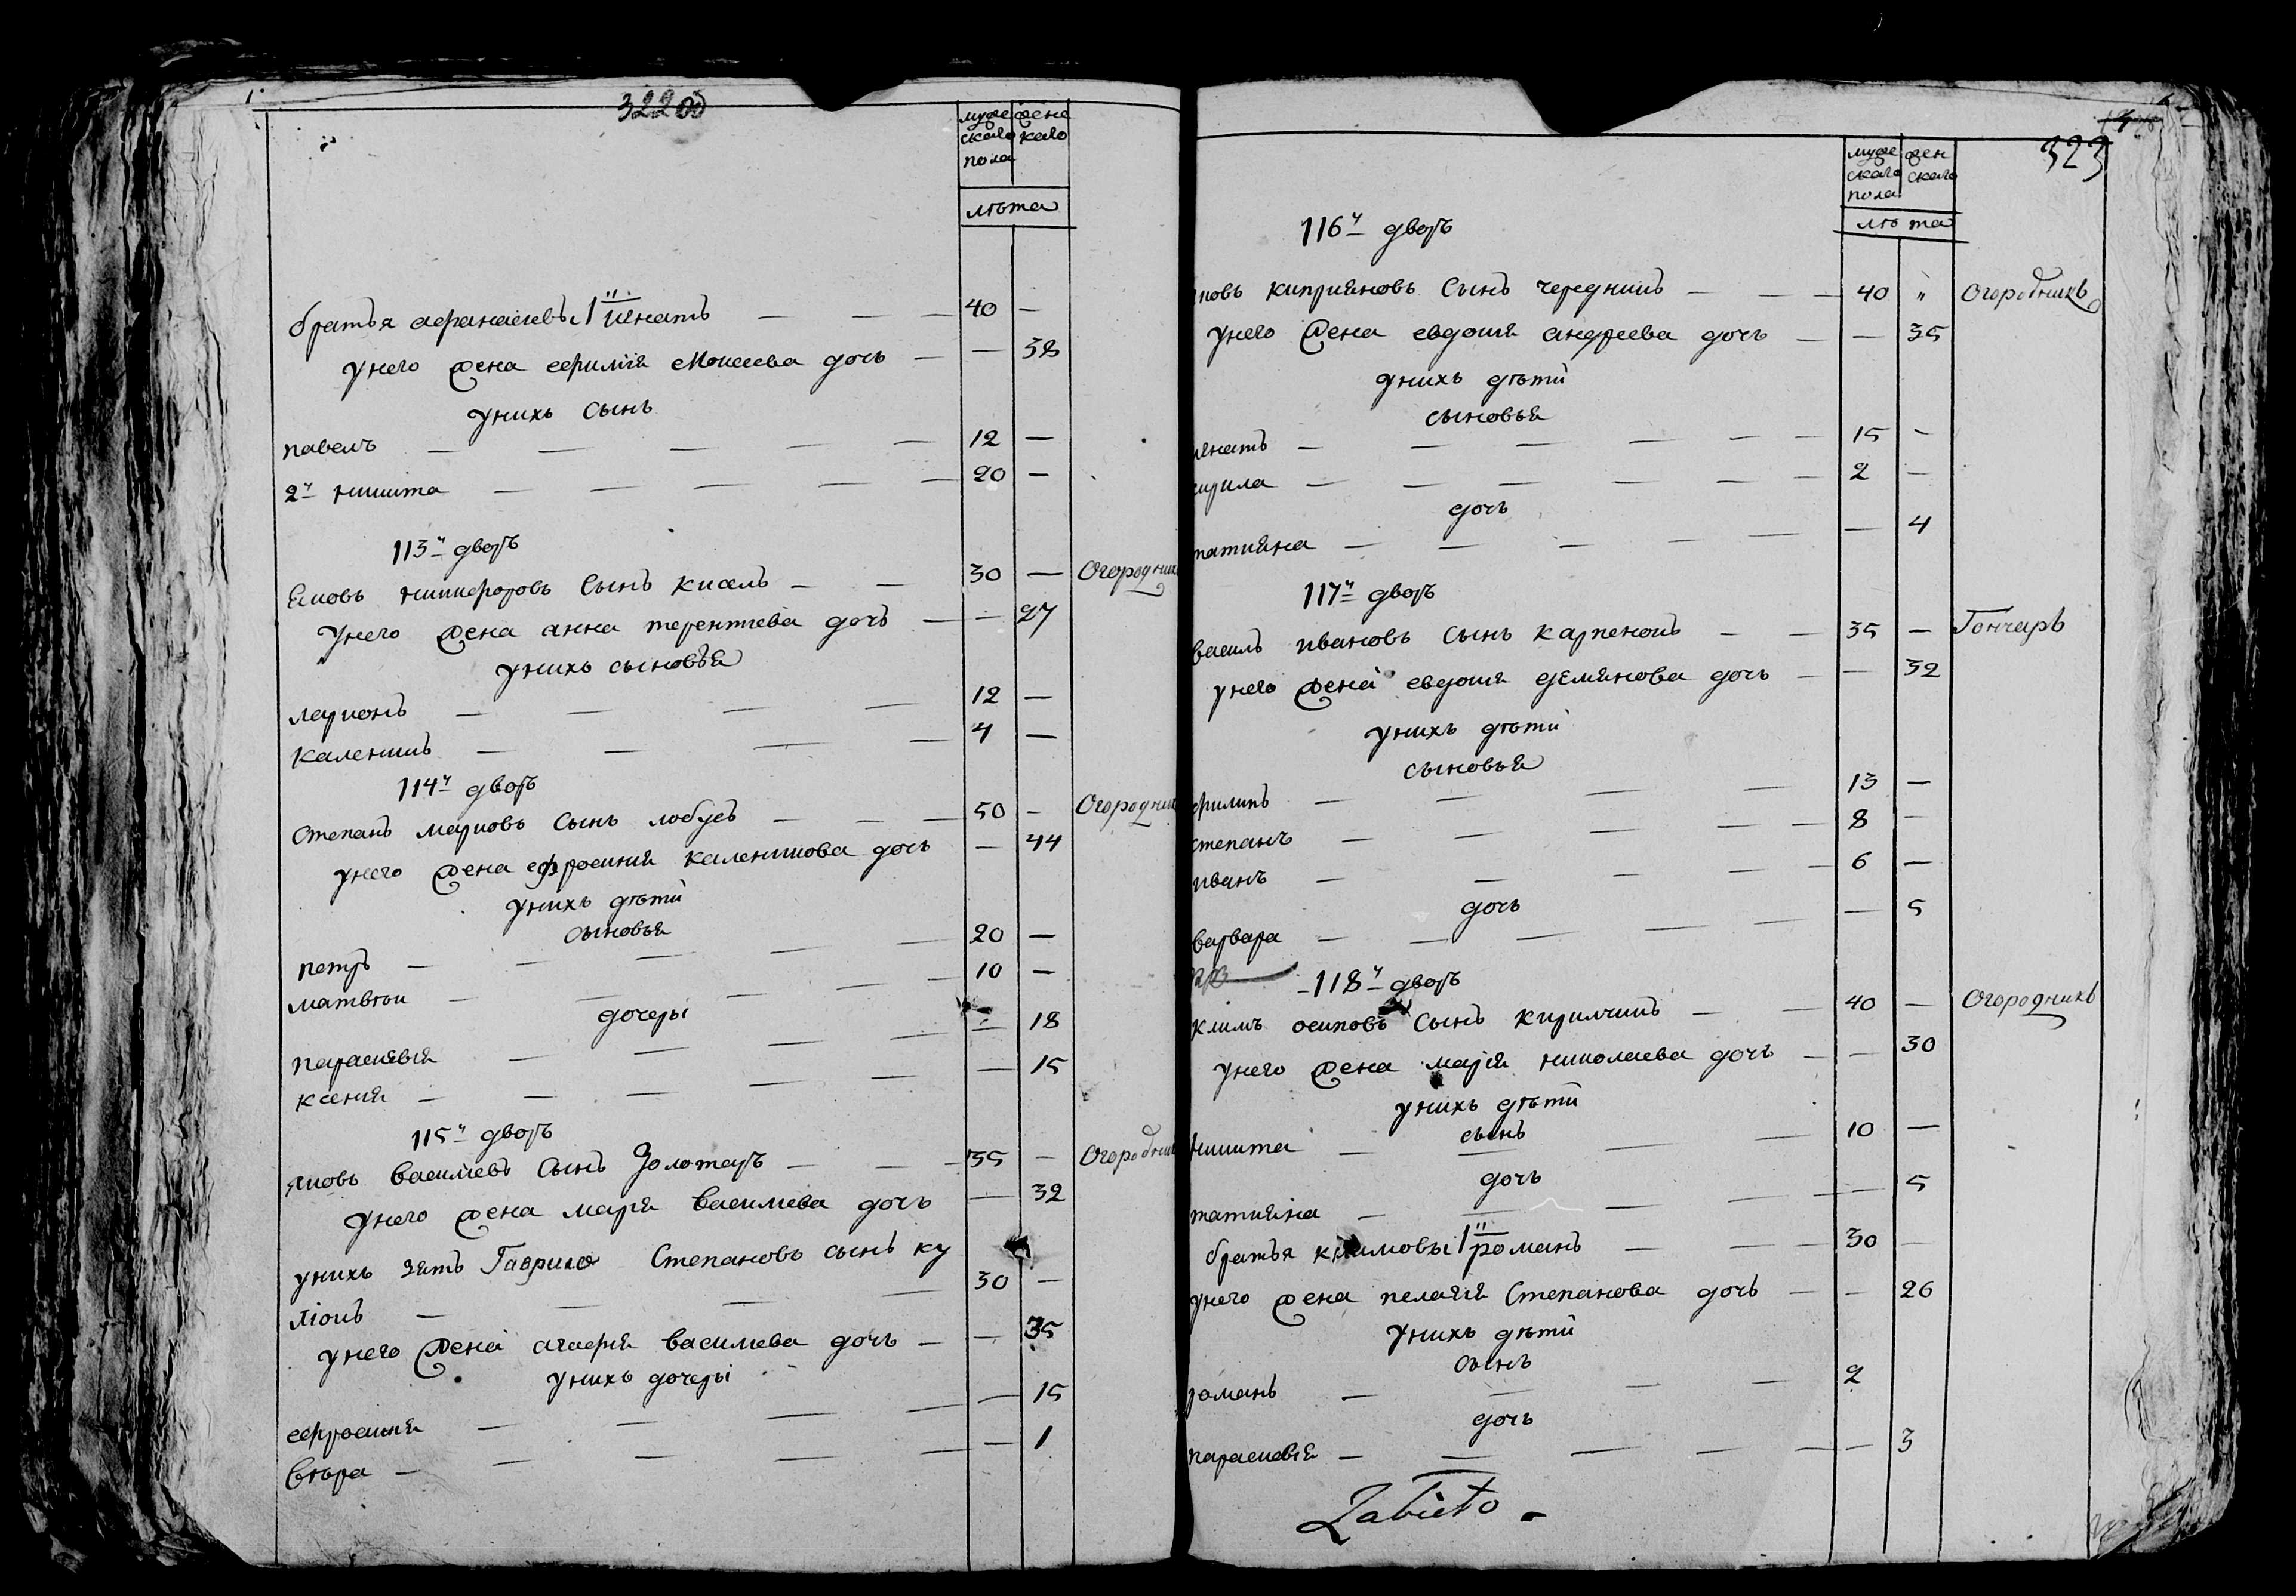 322 об
муже жене
скаго каго
пола
лѣта
братья афанасіевы 1й игнатъ — — — 40 —
унего жена ефимія моисеева дочь — — 38
унихъ сынъ
павелъ — — — — — 12 —
2й никита — — — — — 20 —
113й дворъ
Яковъ никифоровъ Сынъ кисель — — 30 — Огородник
унего жена анна терентіева дочь — — 27
унихъ сыновья
ларионъ — — — — 12 —
каленикъ — — — — 4 —
114й дворъ
Степанъ марковъ Сынъ лобусъ — — — 50 — Огородник
унего жена ефросиния каленикова дочь — 44
унихъ дѣти
сыновья
петръ — — — — — 20 —
матвѣи — — — — — 10 —
дочери
парасκевія — — — — — 18
ксения — — — — — — 15
115й дворъ
яковъ василіевъ Сынъ Золотаръ — — — 35 — Огородник
унего жена мария василиева дочь — 32
унихъ зять Гаврило Степановъ сынъ ку
ліокъ — — — — 30 —
унего жена агафия василиева дочь — — 35
унихъ дочери
ефросиния — — — — — 15
вѣра — — — — — — 1
323
муже жен
скаго скаго
пола
лѣта
116й дворъ
ковъ киприяновъ Сынъ чередникъ — — — 40 " Огородникъ
унего жена евдокия андреева дочь — — 35
унихъ дѣти
сыновья
игнатъ — — — — — — 15 —
кирила — — — — — — 2 —
дочь
татияна — — — — — — 4
117й дворъ
василь ивановъ Сынъ карпенокъ — — 35 — Гончаръ
унего жена евдокия демянова дочь — — 32
унихъ дѣти
сыновья
филипъ — — — — 13 —
степанъ — — — — — 8 —
иванъ — — — — — 6 —
дочь
варвара — — — — — — 5
118й дворъ
климъ осиповъ Сынъ кириличикъ — — 40 — Огородникъ
унего жена марія николаева дочь — — 30
унихъ дѣти
сынъ
никита — — — — 10 —
дочь
татияна — — — — — 5
братья климовы 1й романъ — — — 30 —
унего жена пелагия Степанова дочь — — 26
унихъ дѣти
сынъ
романъ — — — — 2
дочь
параскевія — — — — — — 3